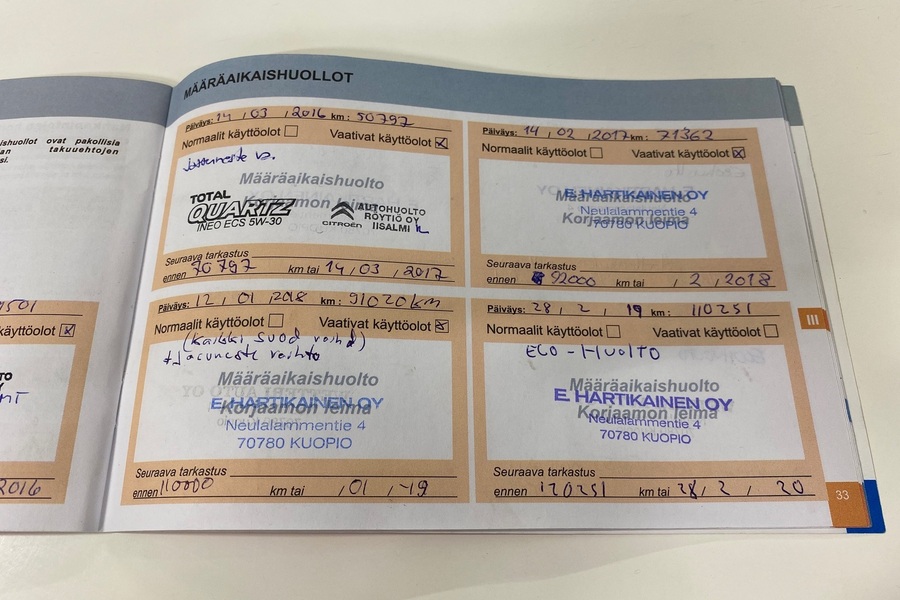 MÄÄRÄAIKAISHUOLLOT
ishuollot ovat pakollisia
an takuuehtojen
si.
Päiväys: 14 , 03 , 2016 km : 50797
Normaalit käyttöolot Vaativat käyttöolot
Määräaikaishuolto
Korjaamon leima
TOTAL
QUARTZ
INEO ECS 5W-30
CITROËN
AUTOHUOLTO
RÖYTIÖ OY
IISALMI
Seuraava tarkastus
ennen 70797 km tai 14 , 03 , 2017
Päiväys: 14 , 02 , 2017 km : 71362
Normaalit käyttöolot Vaativat käyttöolot
Määräaikaishuolto
Korjaamon leima
E. HARTIKAINEN OY
Neulalammentie 4
70780 KUOPIO
Seuraava tarkastus
ennen 92000 km tai , 2 , 2018
Päiväys: 12 , 01 , 2018 km : 91020 km
Normaalit käyttöolot Vaativat käyttöolot
(Kaikki suod vaihd)
+ Jarruneste vaihto
Määräaikaishuolto
Korjaamon leima
E. HARTIKAINEN OY
Neulalammentie 4
70780 KUOPIO
Seuraava tarkastus
ennen 110000 km tai , 01 , -19
Päiväys: 28 , 2 , 19 km : 110251
Normaalit käyttöolot Vaativat käyttöolot
ECO-HUOLTO
Määräaikaishuolto
Korjaamon leima
E. HARTIKAINEN OY
Neulalammentie 4
70780 KUOPIO
Seuraava tarkastus
ennen 120251 km tai 28 , 2 , 20
käyttöolot
2016
III
33